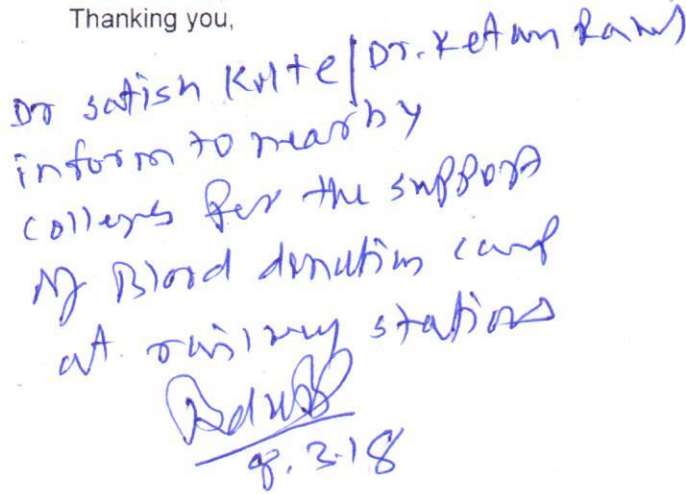 Thanking you,
Dr satish Kolte/Dr. Ketan
inform to nearby
colleges for the support
of Blood donation camp
at railway stations
8.3.18